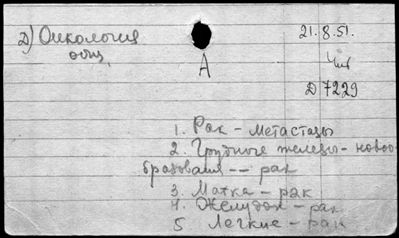 Д) Онкология
общ,
21.8.51.
Чит
А
Д 7229
1. Рак - метастазы
2. Грудные железы - ново-
образования -- рак
3. Матка - рак
4. Желудок - рак
5 Легкие - рак